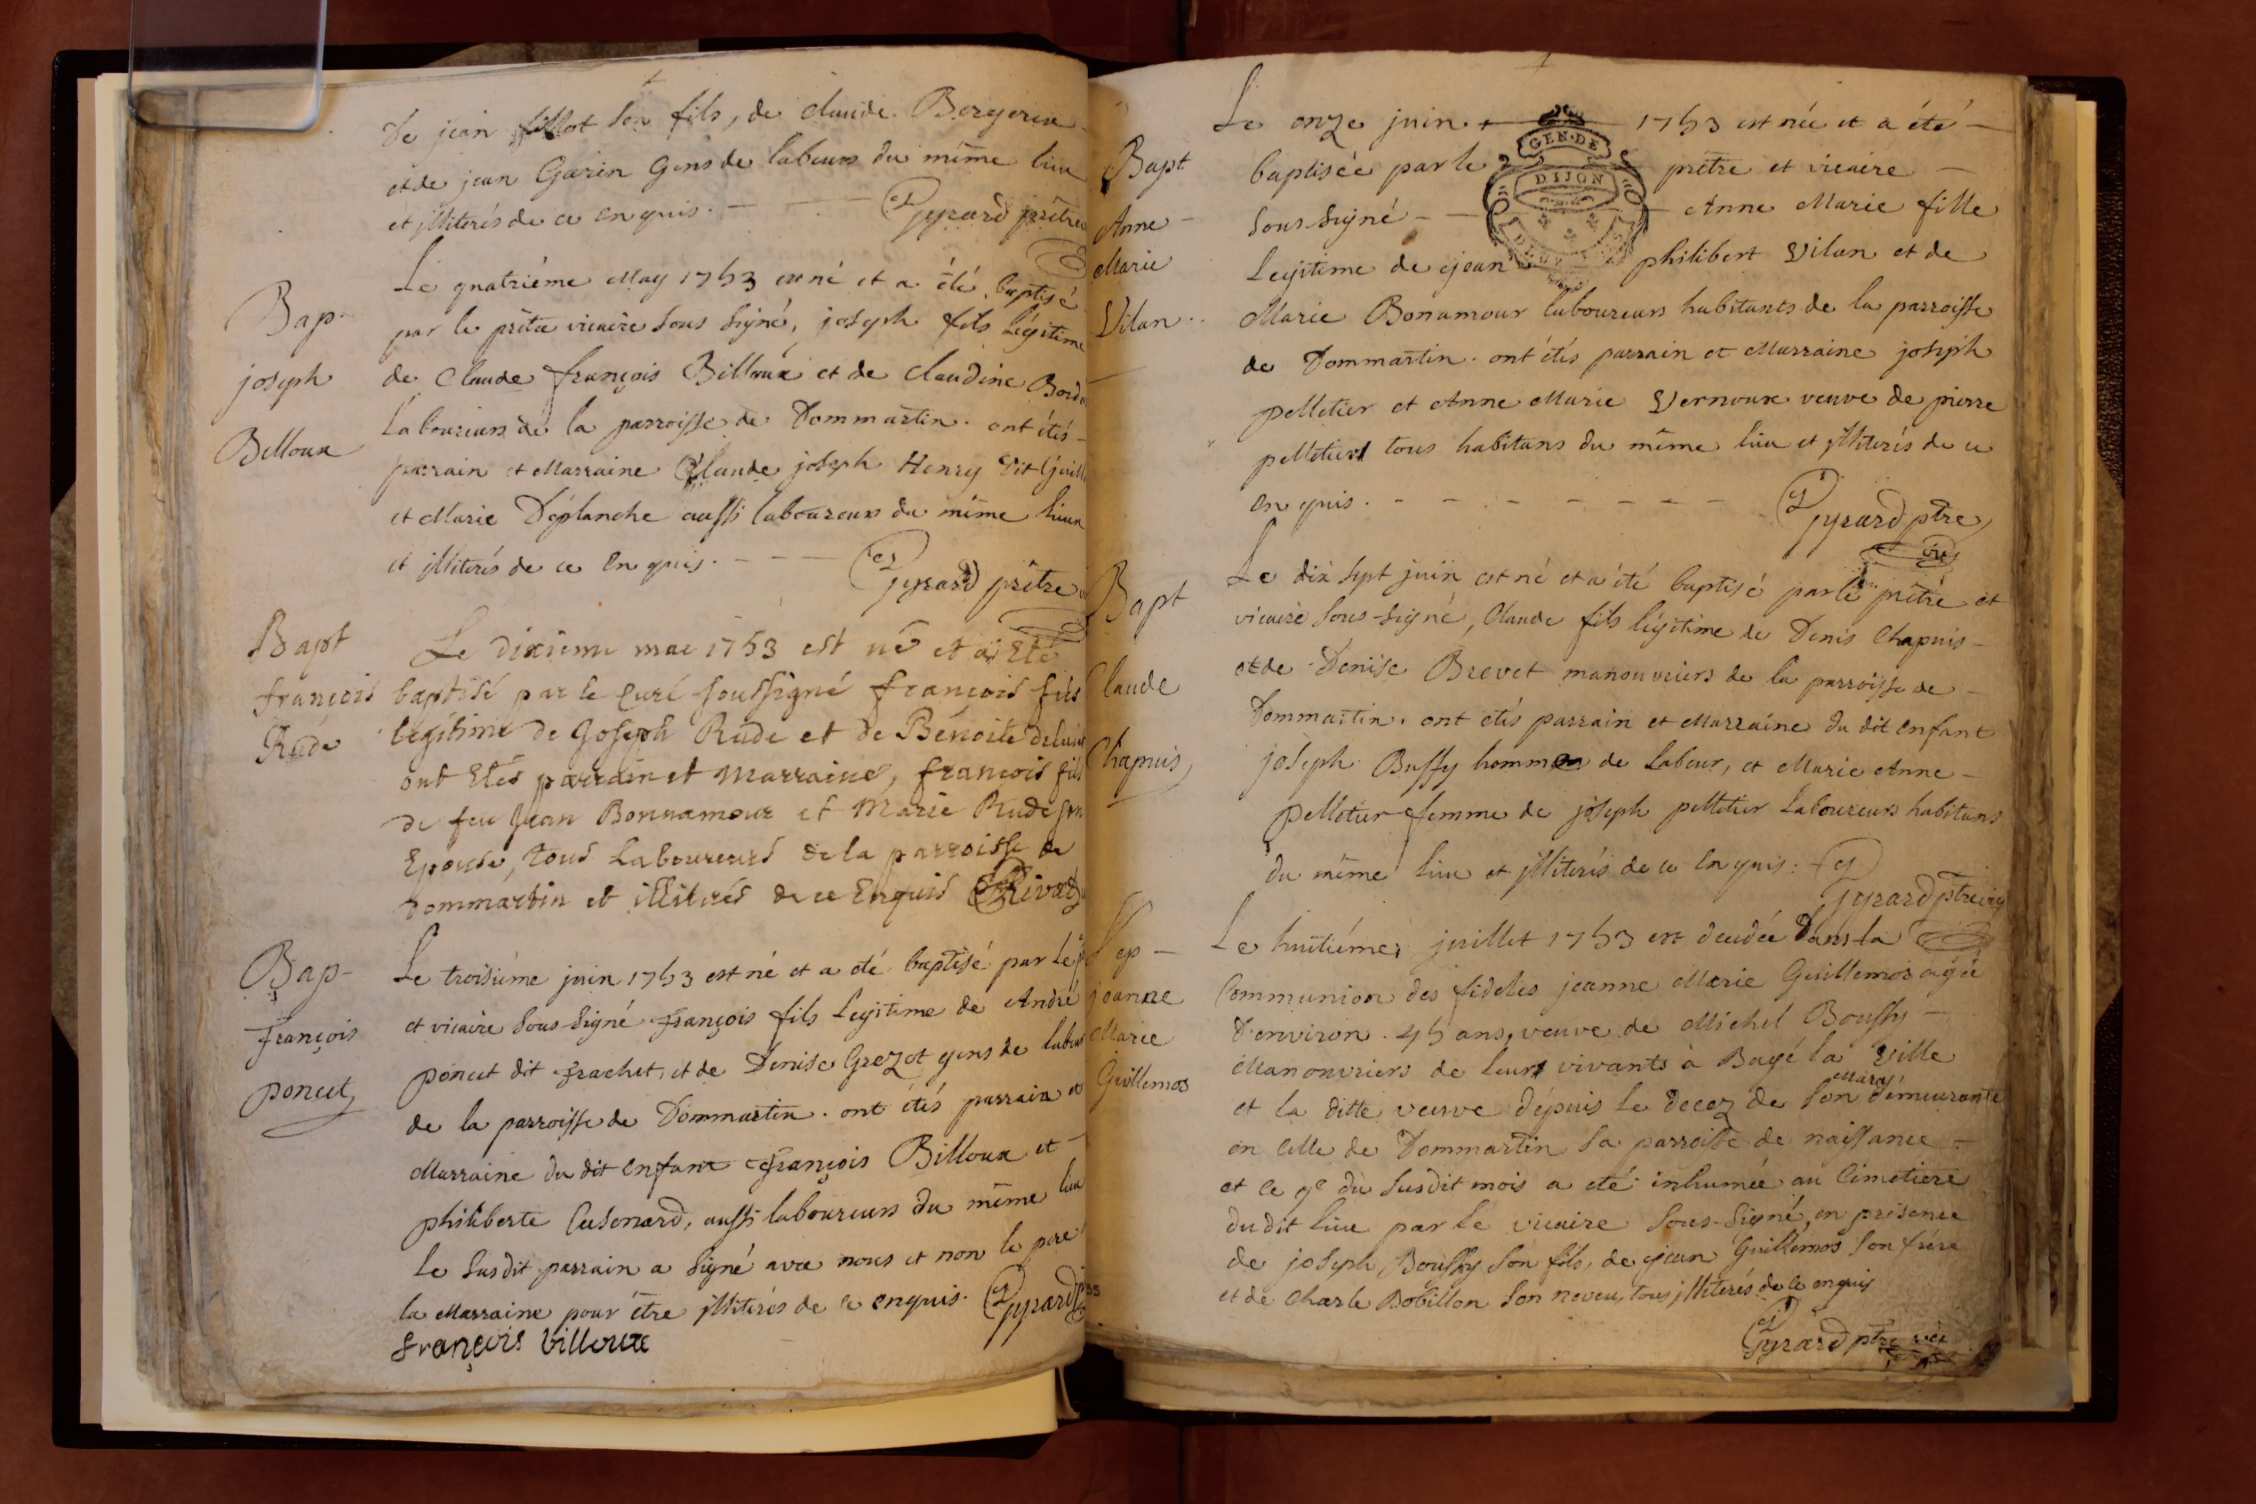 de jean fillot son fils, de claude Bergeron
et de jean Garin Gens de labeurs du même lieu
et jlliterés de ce enquis. Gyrard prêtre
Bap-
joseph
Billoux
Le quatriéme May 1753 est né et a été baptisé
par le prêtre vicaire sous signé, joseph fils légitime
de Claude françois Billoux et de claudine
Laboureurs de la parroisse de Dommartin. ont étés
parrain et Marraine Claude joseph Henry dit
et Marie Déplanche aussi laboureurs du même lieux
et jlliterés de ce enquis. Gyrard prêtre
Bapt
françois
Rude
Le dixieme mai 1753 est né et a Eté
baptisé par le Curé soussigné françois fils
legitime de Joseph Rude et de Benoite
ont Etés parrain et Marraine, françois fils
de feu Jean Bonnamour et Marie Rude son
Epouse, tous Laboureurs de la parroisse de
Dommartin et illiterés de ce Enquis Rivat
Bap-
françois
poncet
Le troisiéme juin 1753 est né et a été baptisé par le
et vicaire sous-signé françois fils Legitime de André
poncet dit frachet, et de Denise Grezot gens de labeur
de la parroisse de Dommartin. ont étés parrain et
Marraine du dit enfant françois Billoux et
philiberte Cusenard, aussi laboureurs du même lieu
le susdit parrain a signé avec nous et non le pere
la Marraine pour être jlliterés de ce enquis. Gyrard
françois billoux
Bapt
Anne
Marie
Vilan
Le onze juin 1753 est née et a été
baptisée par le prêtre et vicaire
GEN. DE
DIJON
sous-signé Anne Marie fille
Legitime de jean philibert Vilan et de
Marie Bonamour laboureurs habitants de la parroisse
de Dommartin. ont étés parrain et Marraine joseph
pelletier et Anne Marie Vernoux veuve de pierre
pelletier tous habitans du même lieu et jlliterés de ce
enquis. Gyrard ptre
vic
Bapt
Claude
Chapuis
Le dix sept juin est né et a été baptisé par le prêtre et
vicaire sous-signé, Claude fils légitime de Denis Chapuis
et de Denise Brevet manouvriers de la parroisse de
Dommartin. ont étés parrain et Marraine du dit enfant
joseph Buffy homme de Labeur, et Marie Anne
pelletier femme de joseph pelletier Laboureurs habitans
du même lieu et jlliterés de ce enquis. Gyrard ptre vic
Sep
jeanne
Marie
Guillemos
Le huitiéme juillet 1753 est decidée dans la
Communion des fideles jeanne Marie Guillemos agée
d'environ 45 ans, veuve de Michel Bouffy
Manouvriers de leurs vivants à Bagé la Ville
et la ditte veuve dépuis le decez de son Mary démeurante
en celle de Dommartin sa parroisse de naissance
et le 9e du susdit mois a été inhumée au Cimetiere
du dit lieu par le vicaire sous-signé, en présence
de joseph Bouffy son fils, de jean Guillemos son frére
et de Charle Bobillon son neveu, tous jlliterés de ce enquis
Gyrard ptre vic